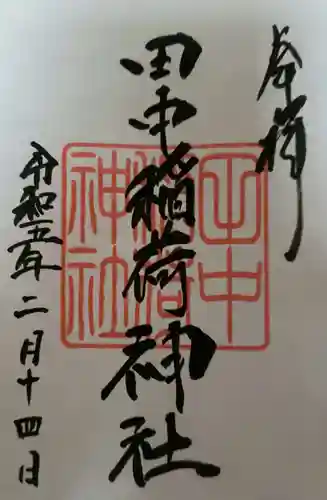 奉拝
田中稲荷神社
田中
稲荷
神社
令和五年二月十四日